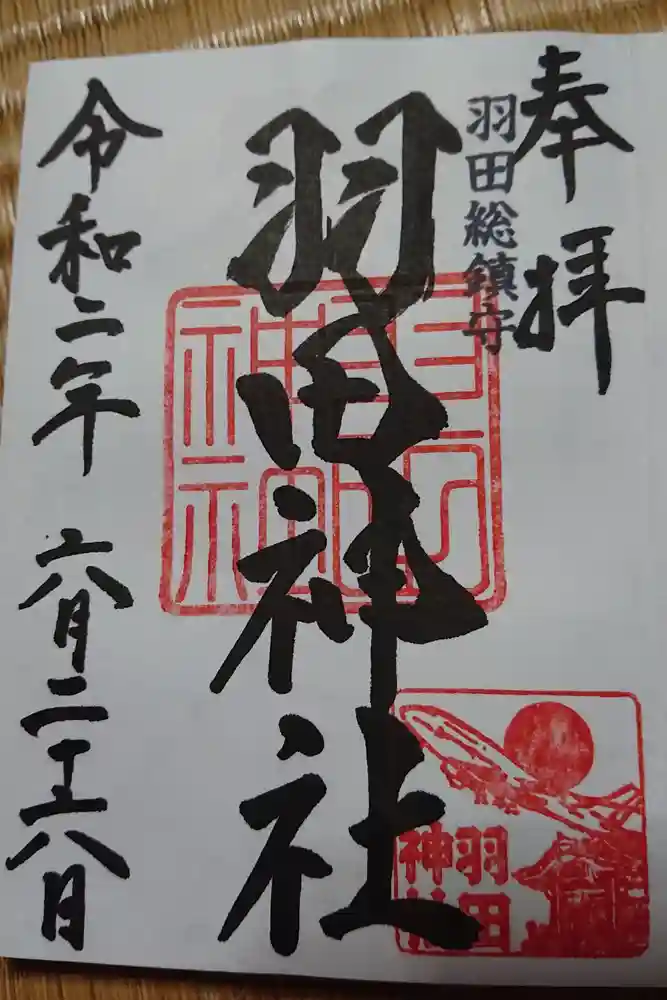 奉拝
羽田総鎮守
羽田神社
令和二年 六月二十六日
羽田
神社